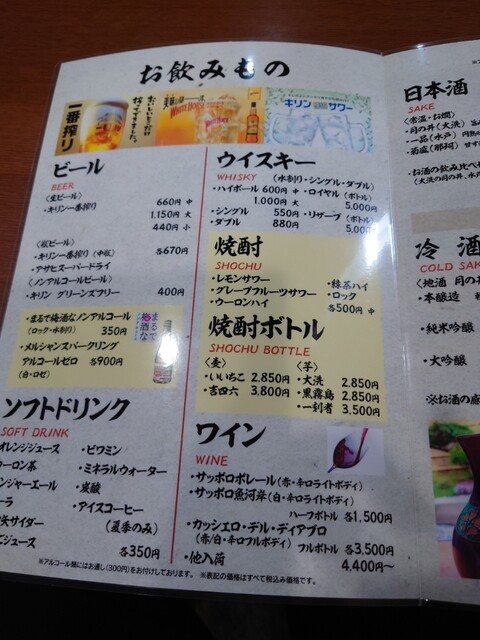 お飲みもの
一番搾り
キリン サワー
ビール
BEER
〈生ビール〉
・キリン一番搾り 660円 中
1,150円 大
440円 小
・キリン一番搾り(中瓶) 各670円
・アサヒスーパードライ
〈ノンアルコールビール〉
・キリン グリーンズフリー 400円
・まるで梅酒なノンアルコール
(ロック・水割り) 350円
・メルシャンスパークリング
アルコールゼロ 各900円
(白・ロゼ)
ソフトドリンク
SOFT DRINK
オレンジジュース
ーロン茶
ンジャーエール
ーラ
サイダー
ジュース
・ビワミン
・ミネラルウォーター
・炭酸
・アイスコーヒー
(夏季のみ)
各350円
ウイスキー
WHISKY (水割り・シングル・ダブル)
・ハイボール 600円 中 ・ロイヤル(ボトル)
1,000円 大 5,000円
・シングル 550円 ・リザーブ(ボトル)
・ダブル 880円 5,00
焼酎
SHOCHU
・レモンサワー ・緑茶ハイ
・グレープフルーツサワー ・ロック
・ウーロンハイ 各500円 中
焼酎ボトル
SHOCHU BOTTLE
〈麦〉 〈芋〉
・いいちこ 2,850円 ・大洗 2,850円
・吉四六 3,800円 ・黒霧島 2,850円
・一刻者 3,500円
ワイン
WINE
・サッポロポレール(赤・辛口ライトボディ)
・サッポロ魚河岸(白・辛口ライトボディ)
ハーフボトル 各1,500円
・カッシェロ・デル・ディアブロ
(赤/白・辛口フルボディ) フルボトル 各3,500円
・他入荷 4,400円〜
※アルコール類にはお通し(300円)をお付けしております。 ※表記の価格はすべて税込み価格です。
日本酒
SAKE
〈常温・お燗〉
・月の井(大洗)
・一品(水戸)
・菊盛(那珂)
・お酒の飲み比べ
(大洗の月の井、水戸
冷 酒
COLD SAK
〈地酒 月の井
・本醸造
・純米吟醸
・大吟醸
※お酒の